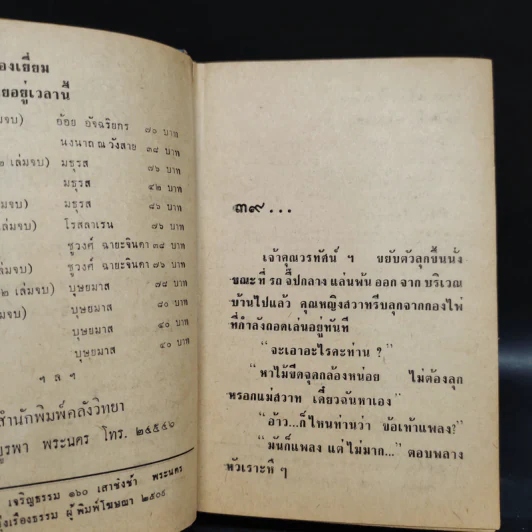 องเยี่ยม
ยอยู่เวลานี้
มจบ) อ้อย อัจฉริยกร ๗๐ บาท
นงนาถ ณ วังสาย ๓๔ บาท
๒ เล่มจบ) มธุรส ๗๖ บาท
มธุรส ๔๒ บาท
จบ) มธุรส ๘๖ บาท
โรสลาเรน ๗๖ บาท
ชูวงศ์ ฉายะจินดา ๓๔ บาท
จบ) ชูวงศ์ ฉายะจินดา
๒ เล่มจบ) บุษยมาส ๗๔ บาท
จบ) บุษยมาส ๘๐ บาท
บุษยมาส ๔๐ บาท
บุษยมาส ๔๐ บาท
ฯ ล ฯ
สำนักพิมพ์คลังวิทยา
บูรพา พระนคร โทร. ๒๕๕๔๖
เจริญธรรม ๑๖๐ เสาชิงช้า พระนคร
รุ่งเรืองธรรม ผู้พิมพ์โฆษณา ๒๕๐๘
๓๙...
เจ้าคุณวรทัศน์ ฯ ขยับตัวลุกขึ้นนั่ง
ขณะที่ รถ จี๊ปกลาง แล่นพ้น ออก จาก บริเวณ
บ้านไปแล้ว คุณหญิงสวาทรีบลุกจากกองไพ่
ที่กำลังถอดเล่นอยู่ทันที
“จะเอาอะไรคะท่าน ?”
“หาไม้ขีดจุดกล้องหน่อย ไม่ต้องลุก
หรอกแม่สวาท เดี๋ยวฉันหาเอง”
“อ้าว...ก็ไหนท่านว่า ข้อเท้าแพลง?”
“มันก็แพลง แต่ไม่มาก...” ตอบพลาง
หัวเราะหึ ๆ